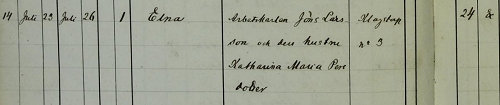 14 Juli 23 Juli 26 1 Elna Arbetskarlen Jöns Lars Klagstorp 24
son och dess hustru nº 3
Katharina Maria Pers
dotter